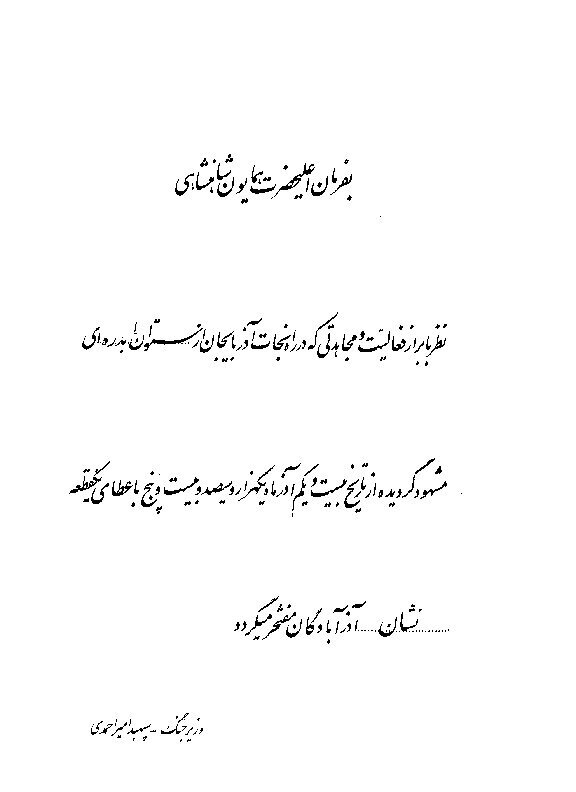 بفرمان اعلیحضرت همایون شاهنشاهی
نظر بابراز فعالیت و مجاهدتی که در راه نجات آذربایجان از ستوان ۱ بدره‌ای
مشهود گردیده از تاریخ بیست و یکم آذر ماه یکهزار و سیصد و بیست و پنج با عطای یکقطعه
نشان ..... آذرآبادگان مفتخر میگردد
وزیر جنگ - سپهبد امیراحمدی